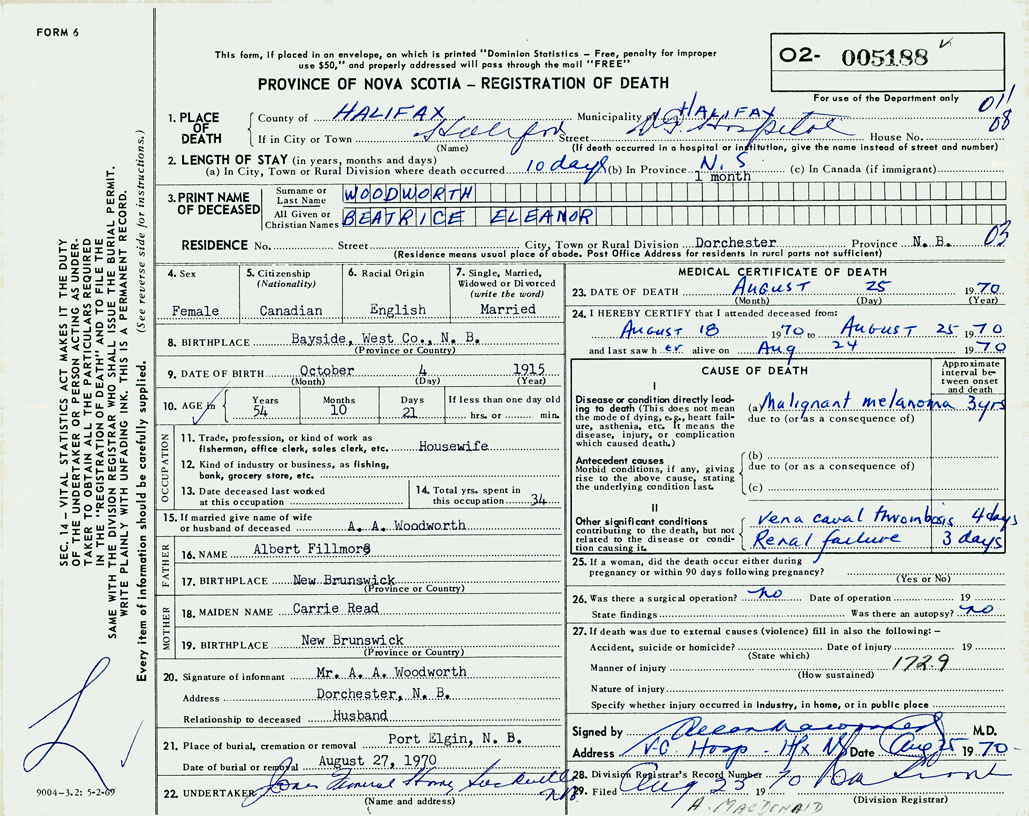 FORM 6
This form, if placed in an envelope, on which is printed "Dominion Statistics – Free, penalty for improper
use $50," and properly addressed will pass through the mail "FREE"
PROVINCE OF NOVA SCOTIA – REGISTRATION OF DEATH
O2- 005188
For use of the Department only
011
08
1. PLACE OF DEATH
County of HALIFAX Municipality of HALIFAX
If in City or Town Halifax Street V.G. Hospital House No.
(Name) (If death occurred in a hospital or institution, give the name instead of street and number)
2. LENGTH OF STAY (in years, months and days)
(a) In City, Town or Rural Division where death occurred 10 days (b) In Province N. S 1 month (c) In Canada (if immigrant)
3. PRINT NAME OF DECEASED
Surname or Last Name WOODWORTH
All Given or Christian Names BEATRICE ELEANOR
RESIDENCE No. Street City, Town or Rural Division Dorchester Province N. B. 03
(Residence means usual place of abode. Post Office Address for residents in rural parts not sufficient)
4. Sex
Female
5. Citizenship (Nationality)
Canadian
6. Racial Origin
English
7. Single, Married, Widowed or Divorced (write the word)
Married
8. BIRTHPLACE Bayside, West Co., N. B.
(Province or Country)
9. DATE OF BIRTH October 4 1915
(Month) (Day) (Year)
10. AGE in Years 54 Months 10 Days 21 If less than one day old hrs. or min.
OCCUPATION
11. Trade, profession, or kind of work as
fisherman, office clerk, sales clerk, etc. Housewife
12. Kind of industry or business, as fishing,
bank, grocery store, etc.
13. Date deceased last worked
at this occupation
14. Total yrs. spent in
this occupation 34
15. If married give name of wife
or husband of deceased A. A. Woodworth
FATHER
16. NAME Albert Fillmore
17. BIRTHPLACE New Brunswick
(Province or Country)
MOTHER
18. MAIDEN NAME Carrie Read
19. BIRTHPLACE New Brunswick
(Province or Country)
20. Signature of informant Mr. A. A. Woodworth
Address Dorchester, N. B.
Relationship to deceased Husband
21. Place of burial, cremation or removal Port Elgin, N. B.
Date of burial or removal August 27, 1970
22. UNDERTAKER Jones Funeral Home Sackville NB
(Name and address)
MEDICAL CERTIFICATE OF DEATH
23. DATE OF DEATH AUGUST 25 1970
(Month) (Day) (Year)
24. I HEREBY CERTIFY that I attended deceased from:
AUGUST 18 1970 to AUGUST 25 1970
and last saw her alive on Aug 24 1970
CAUSE OF DEATH
Approximate interval between onset and death
I
Disease or condition directly leading to death (This does not mean the mode of dying, e.g., heart failure, asthenia, etc. It means the disease, injury, or complication which caused death.)
(a) Malignant melanoma 3 yrs
due to (or as a consequence of)
Antecedent causes
Morbid conditions, if any, giving rise to the above cause, stating the underlying condition last.
(b)
due to (or as a consequence of)
(c)
II
Other significant conditions
contributing to the death, but not related to the disease or condition causing it.
Vena caval thrombosis 4 days
Renal failure 3 days
25. If a woman, did the death occur either during
pregnancy or within 90 days following pregnancy?
(Yes or No)
26. Was there a surgical operation? no Date of operation 19
State findings Was there an autopsy? no
27. If death was due to external causes (violence) fill in also the following: –
Accident, suicide or homicide? Date of injury 19
(State which)
Manner of injury 172.9
(How sustained)
Nature of injury
Specify whether injury occurred in Industry, in home, or in public place
Signed by M.D.
Address V.G. Hosp - Hfx NS Date Aug 25 1970
28. Division Registrar's Record Number
29. Filed Aug 25 1970
(Division Registrar)
A. MACDONALD
SEC. 14 – VITAL STATISTICS ACT MAKES IT THE DUTY
OF THE UNDERTAKER OR PERSON ACTING AS UNDER-
TAKER TO OBTAIN ALL THE PARTICULARS REQUIRED
IN THE "REGISTRATION OF DEATH" AND TO FILE THE
SAME WITH THE DIVISION REGISTRAR WHO SHALL ISSUE THE BURIAL PERMIT.
WRITE PLAINLY WITH UNFADING INK. THIS IS A PERMANENT RECORD.
Every item of information should be carefully supplied. (See reverse side for instructions.)
9004-3.2: 5-2-69